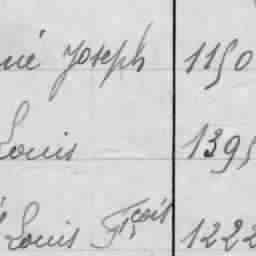 né Joseph 1150
Louis 1395
Louis Fçois 1222